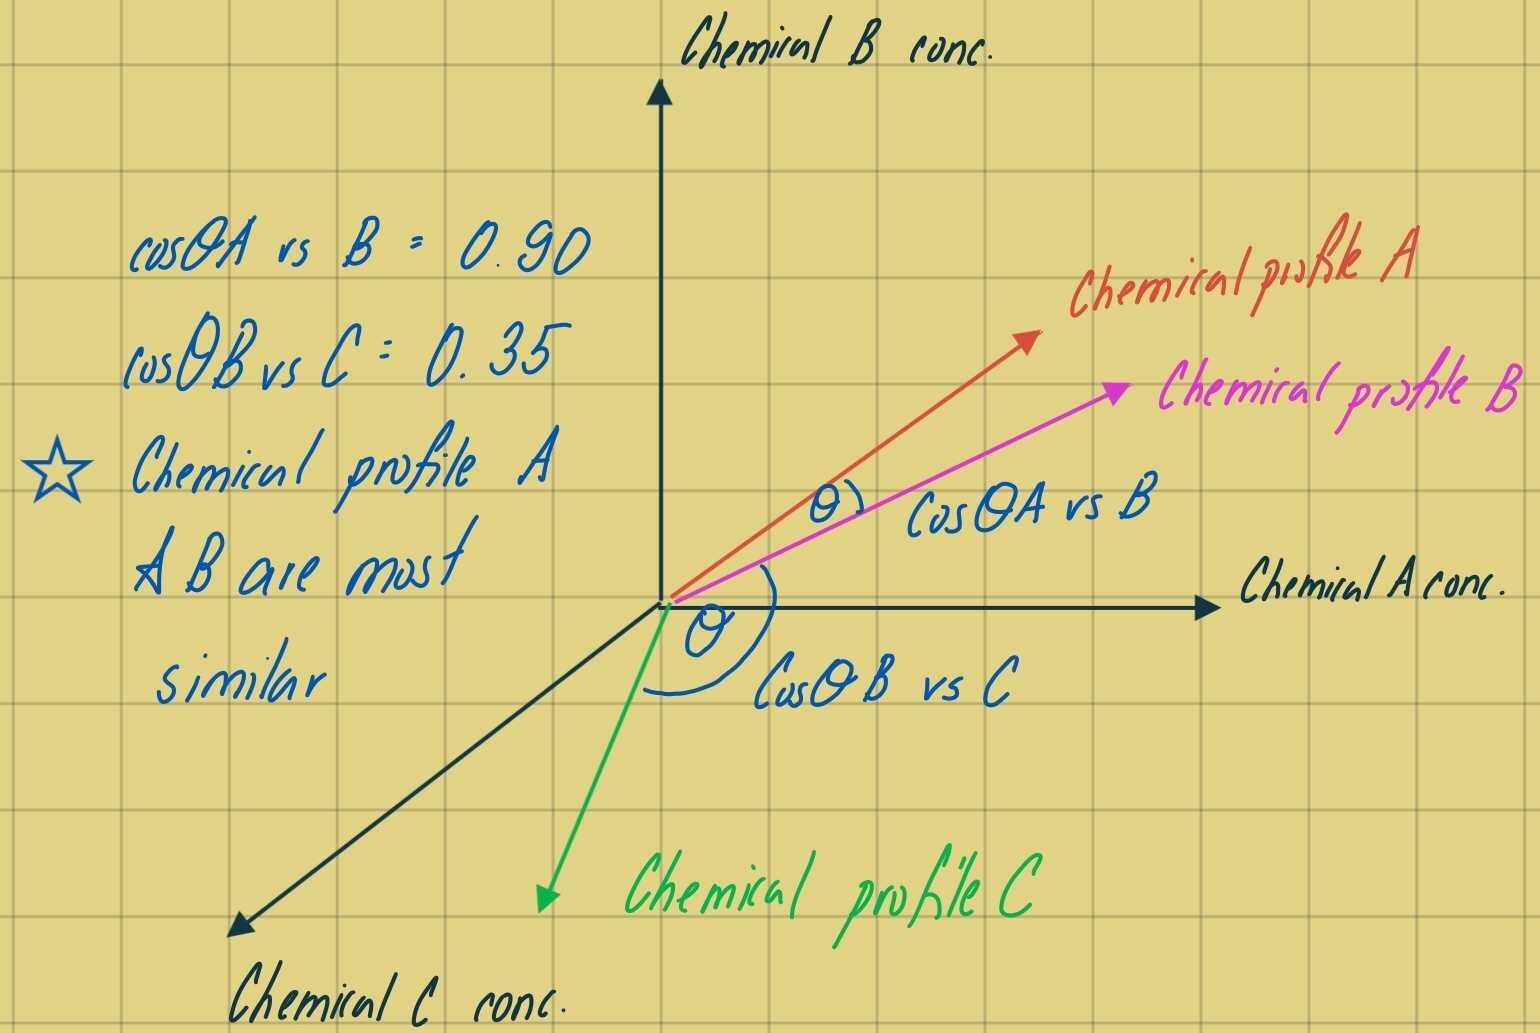 Chemical B conc.
cosθA vs B = 0.90
cosθB vs C = 0.35
Chemical profile A
& B are most
similar
Chemical profile A
Chemical profile B
θ
CosθA vs B
Chemical A conc.
θ
CosθB vs C
Chemical profile C
Chemical C conc.